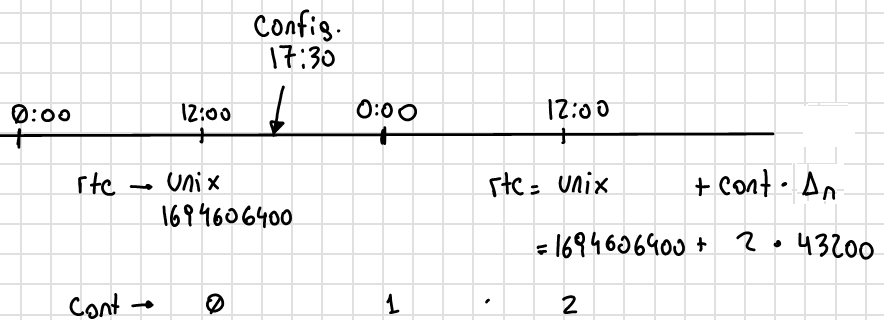 Config.
17:30
0:00 12:00 0:00 12:00
rtc → unix
1694606400
rtc = unix + cont · Δn
= 1694606400 + 2 · 43200
Cont → 0 1 · 2